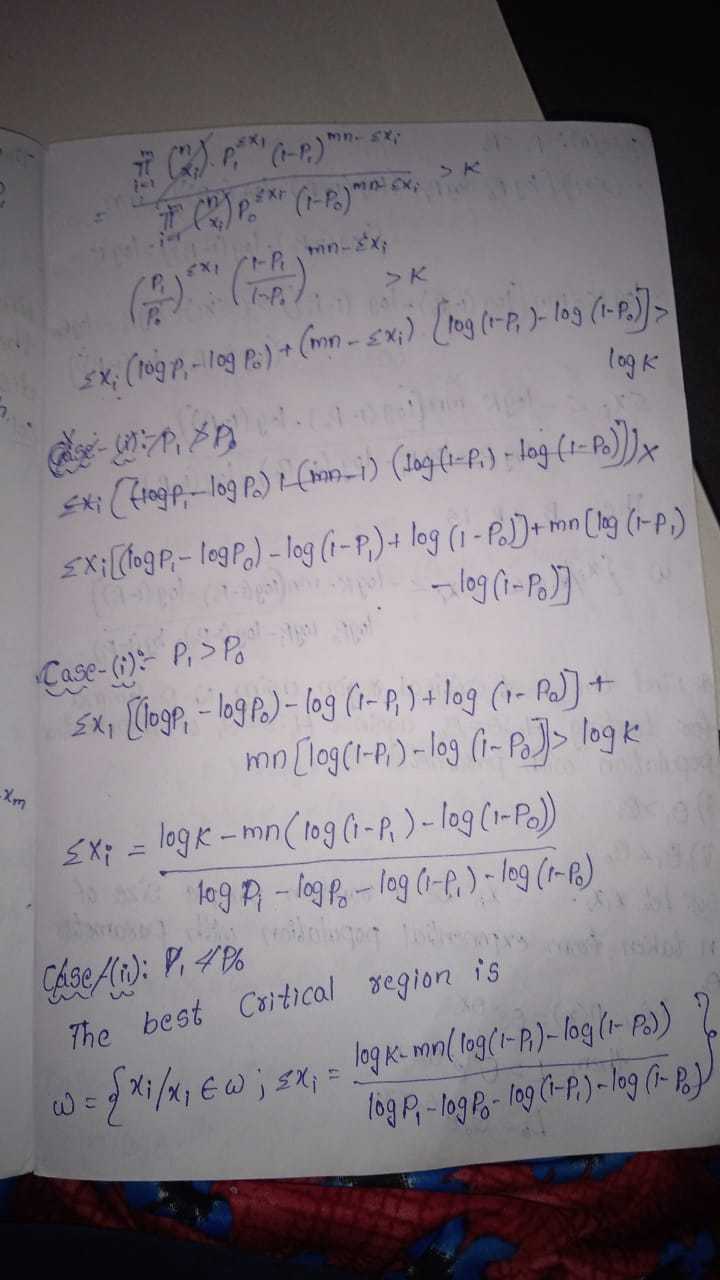 = m π i=1 (n xi) . P₁^Σx₁ (1-P₁)^mn-Σxi / m π i=1 (n xi) P₀^Σxi (1-P₀)^mn-Σxi > K
(P₁/P₀)^Σx₁ (1-P₁/1-P₀)^mn-Σxi > K
Σxi (log P₁ - log P₀) + (mn - Σxi) [log (1-P₁) - log (1-P₀)] >
log K
Case-(i):- P₁ > P₀
Σxi [(log P₁ - log P₀) + (mn-1) (log (1-P₁) - log (1-P₀))]
Σxi [(log P₁ - log P₀) - log (1-P₁) + log (1-P₀)] + mn [log (1-P₁)
- log (1-P₀)]
Case-(i):- P₁ > P₀
Σx₁ [(log P₁ - log P₀) - log (1-P₁) + log (1-P₀)] +
mn [log (1-P₁) - log (1-P₀)] > log K
xm
Σxi = log K - mn (log (1-P₁) - log (1-P₀)) / log P₁ - log P₀ - log (1-P₁) - log (1-P₀)
Case (ii): P₁ < P₀
The best Critical region is
ω = { xi / x₁ ∈ ω ; Σx₁ = log K - mn (log (1-P₁) - log (1-P₀)) / log P₁ - log P₀ - log (1-P₁) - log (1-P₀) }